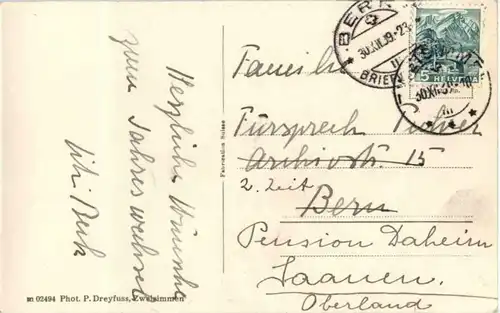 Herzliche Wünsche
zum Jahreswechsel
Familie
Fürsprech
Archivstr. 15
z. Zeit
Bern
Pension Daheim
Saanen.
Oberland
Fabrication Suisse
m 02494 Phot. P. Dreyfuss, Zweisimmen
BERN
9
30.XII.39-23
BRIEF
15 HELVETIA
30.XII.39